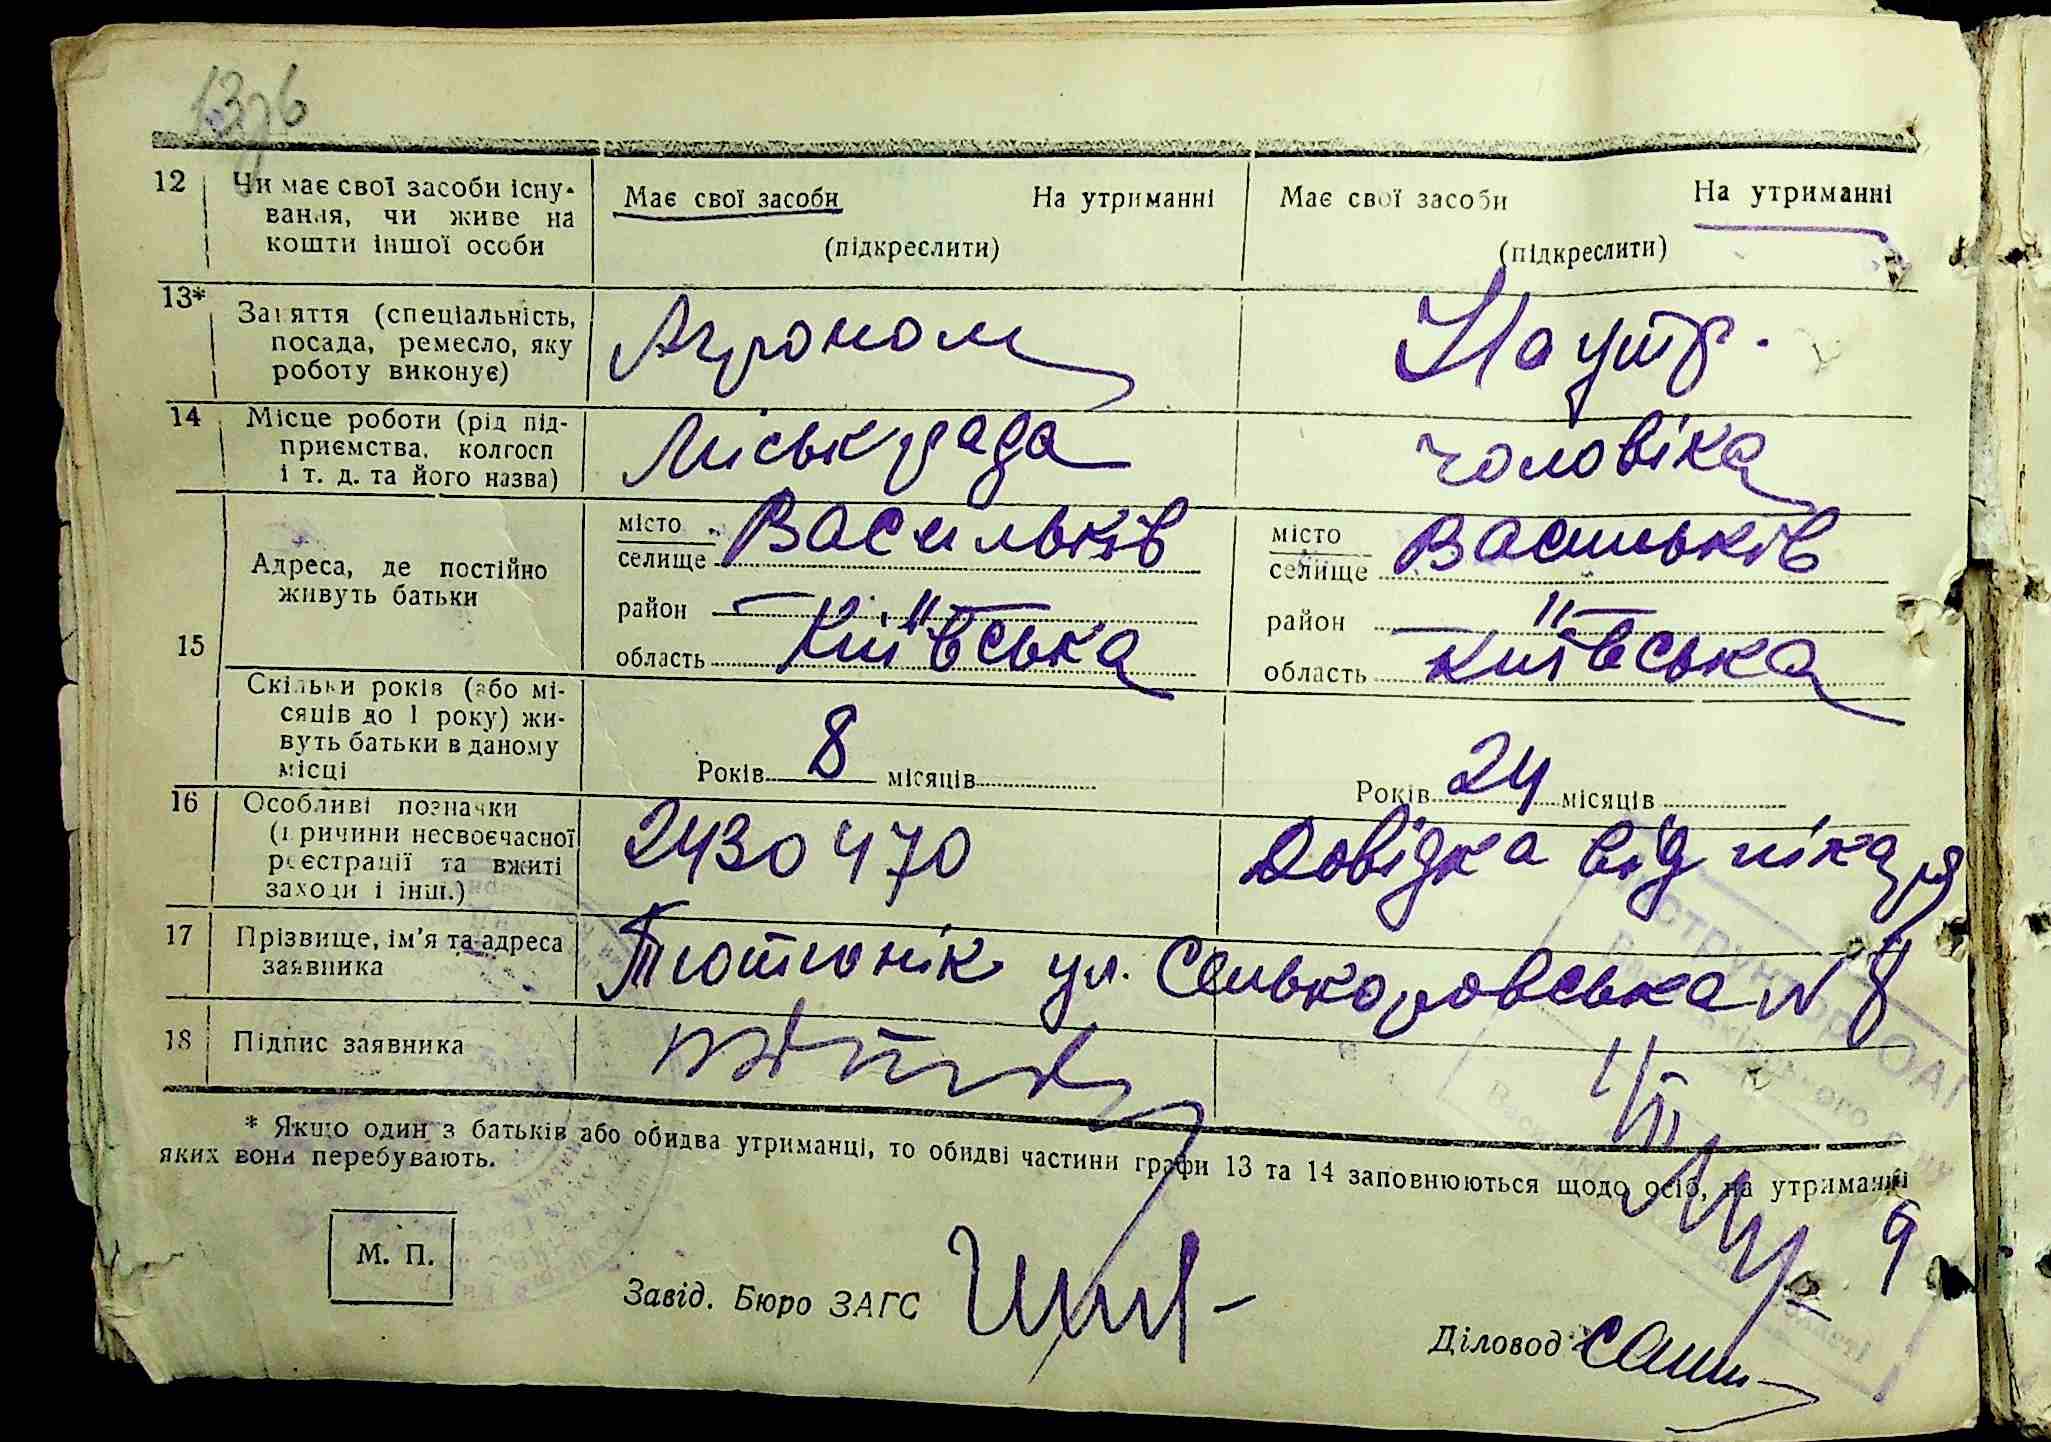 13зв
12 Чи має свої засоби існу- Має свої засоби На утриманні Має свої засоби На утриманні
вання, чи живе на
кошти іншої особи (підкреслити) (підкреслити)
13* Заняття (спеціальність, Агроном На утр.
посада, ремесло, яку
роботу виконує)
14 Місце роботи (рід під- Міськрада чоловіка
приємства, колгосп
і т. д. та його назва)
місто Васильків місто Васильків
Адреса, де постійно селище селище
живуть батьки район —"— район —"—
15 область Київська область Київська
Скільки років (або мі-
сяців до 1 року) жи-
вуть батьки в даному
місці Років 8 місяців Років 24 місяців
16 Особливі позначки 2430470 Довідка від лікаря
(причини несвоєчасної
реєстрації та вжиті
заходи і інш.)
17 Прізвище, ім'я та адреса Тютюнік ул. Селькоровська № 8
заявника
18 Підпис заявника
* Якщо один з батьків або обидва утриманці, то обидві частини графи 13 та 14 заповнюються щодо осіб, на утриманні
яких вони перебувають.
М. П.
Завід. Бюро ЗАГС
Діловод